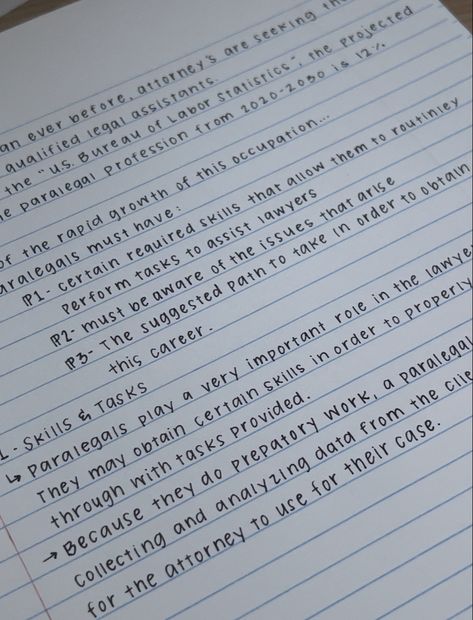 an ever before, attorney's are seeking the
qualified legal assistants.
the "U.S. Bureau of Labor Statistics", the projected
Paralegal Profession from 2020-2030 is 12%
of the rapid growth of this occupation...
paralegals must have:
P1- certain required skills that allow them to routinley
perform tasks to assist lawyers
P2- must be aware of the issues that arise
P3- The suggested path to take in order to obtain
this career.
1.- Skills & Tasks
↳ Paralegals play a very important role in the lawye
They may obtain certain skills in order to properly
through with tasks provided.
→ Because they do prepatory work, a paralegal
collecting and analyzing data from the clie
for the attorney to use for their case.